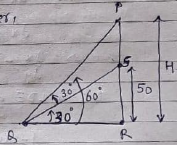 er,
P
30°
60°
S
50
H
30°
Q
R